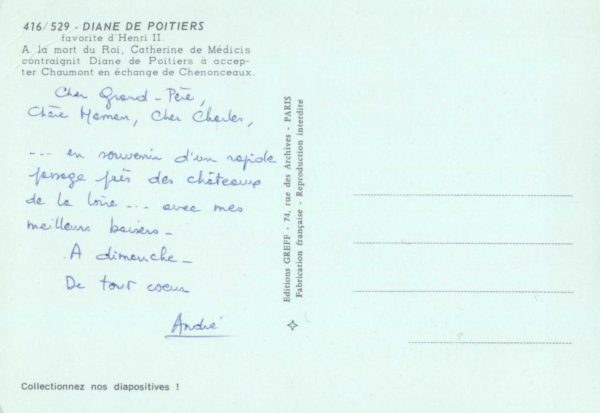 416/529 - DIANE DE POITIERS
favorite d'Henri II.
A la mort du Roi, Catherine de Médicis
contraignit Diane de Poitiers à accep-
ter Chaumont en échange de Chenonceaux.
Cher Grand-Père,
Chère Maman, Cher Charles,
... en souvenir d'un rapide
passage près des châteaux
de la Loire ... avec mes
meilleurs baisers -
A dimanche -
De tout coeur
André
Editions GREFF - 74, rue des Archives - PARIS
Fabrication française - Reproduction interdite
Collectionnez nos diapositives !